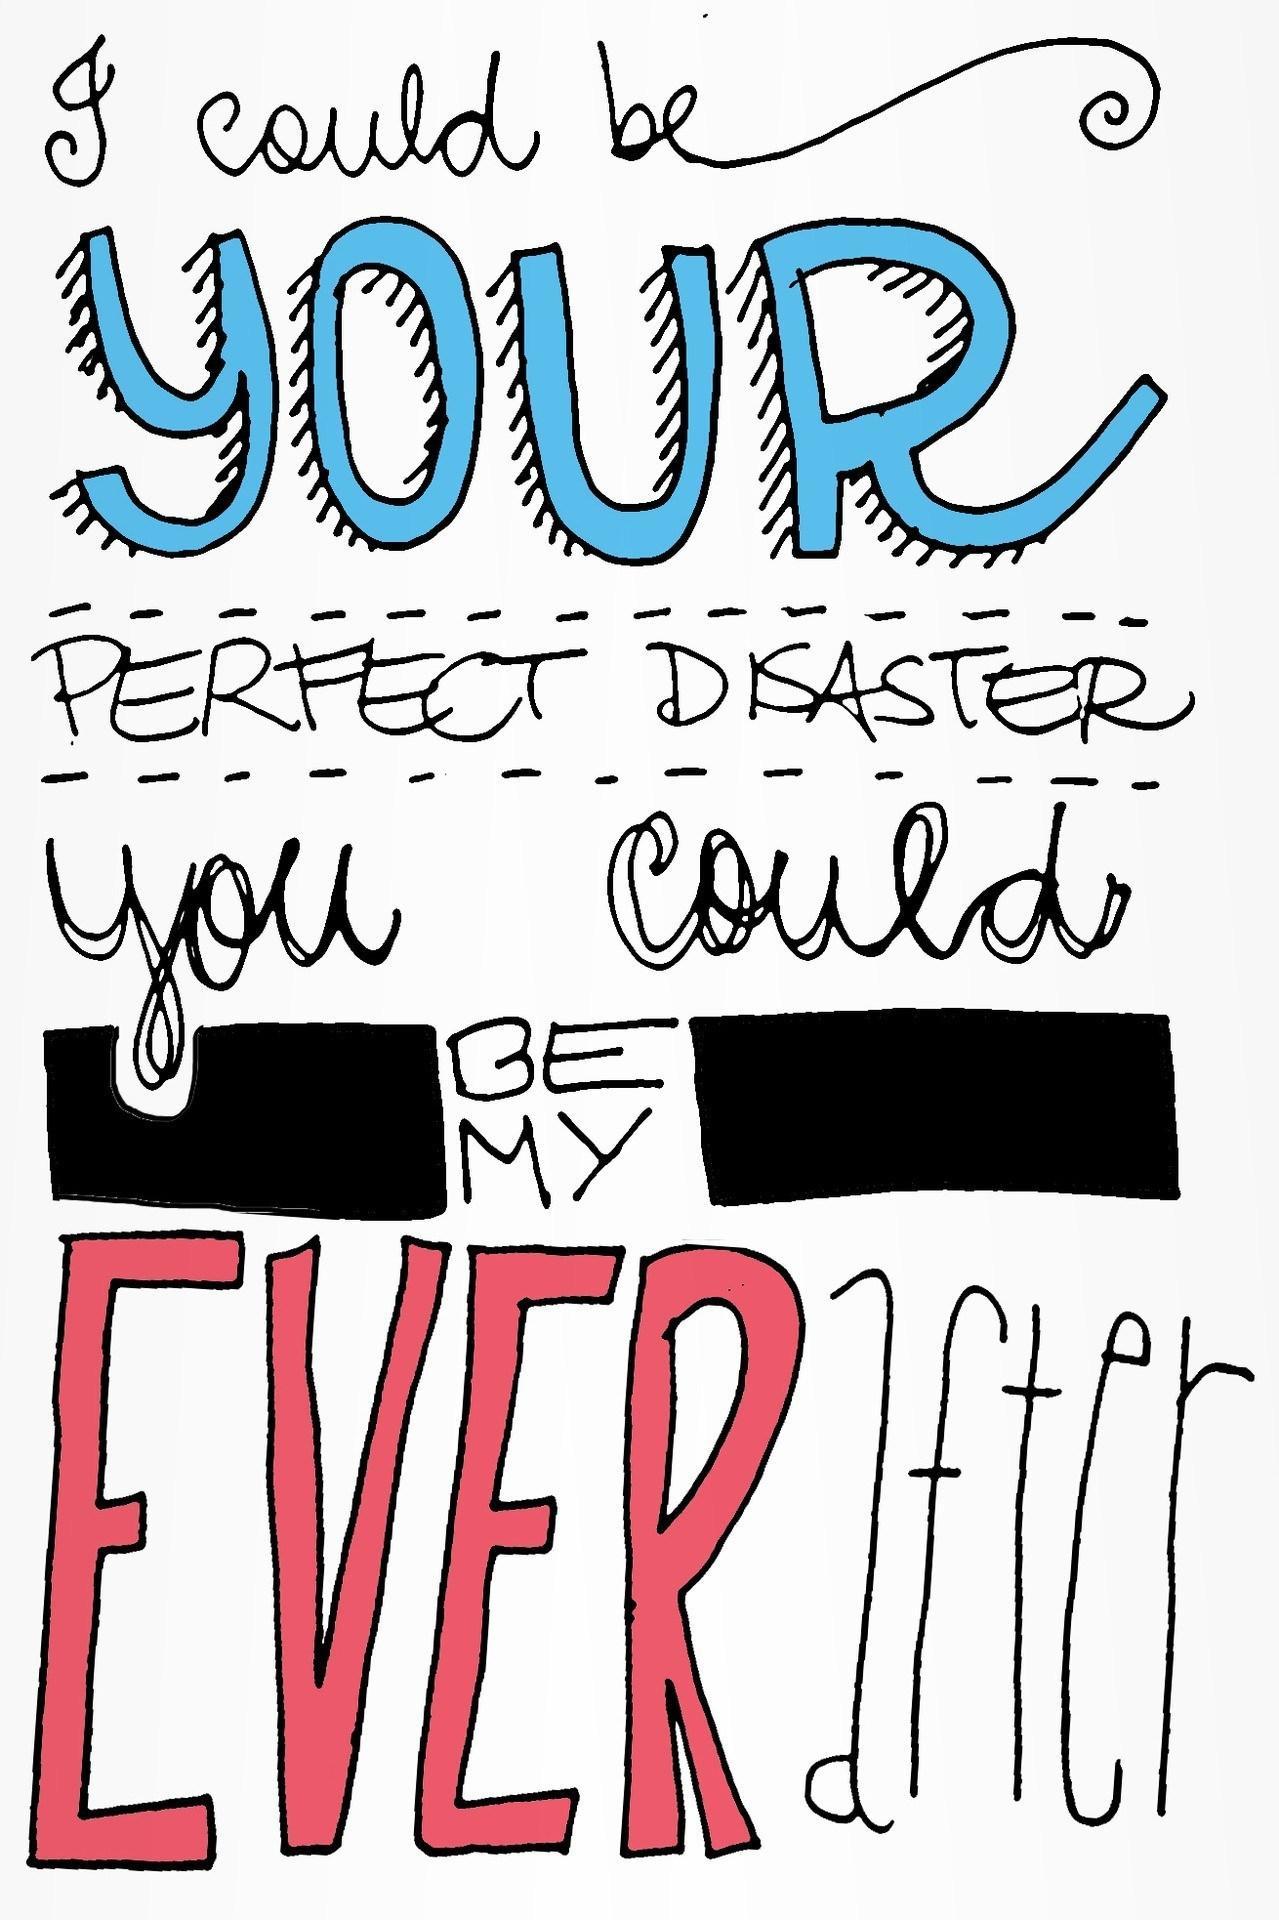 I could be
YOUR
PERFECT DISASTER
you could
BE
MY
EVER after